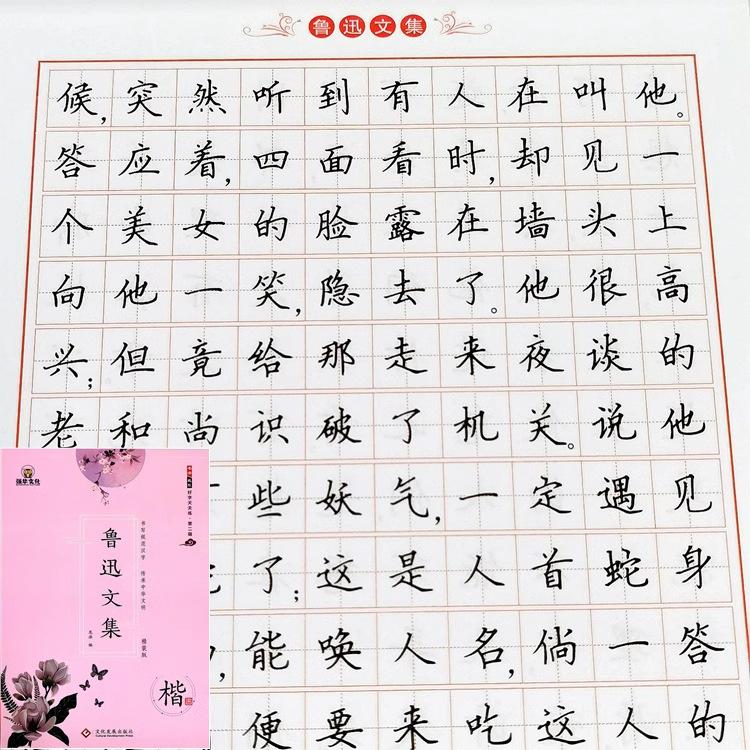 鲁迅文集
候，突然听到有人在叫他。
答应着，四面看时，却见一
个美女的脸露在墙头上
向他一笑，隐去了。他很高
兴；但竟给那走来夜谈的
老和尚识破了机关。说他
些妖气，一定遇见
了；这是人首蛇身
能唤人名，倘一答
便要来吃这人的
强华文化
好字天天练·第二辑
鲁迅文集
书写规范汉字 传承中华文明
精装版
楷
文化发展出版社
Cultural Development Press